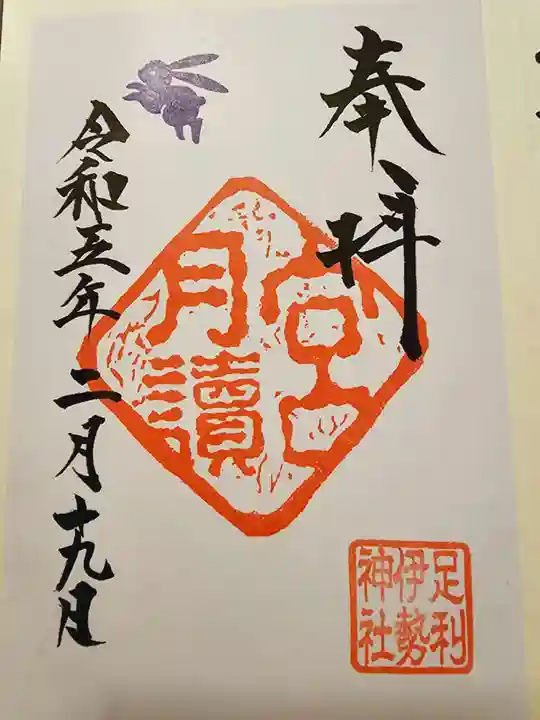 奉拝
月讀
宮
足利
伊勢
神社
令和五年二月十九日